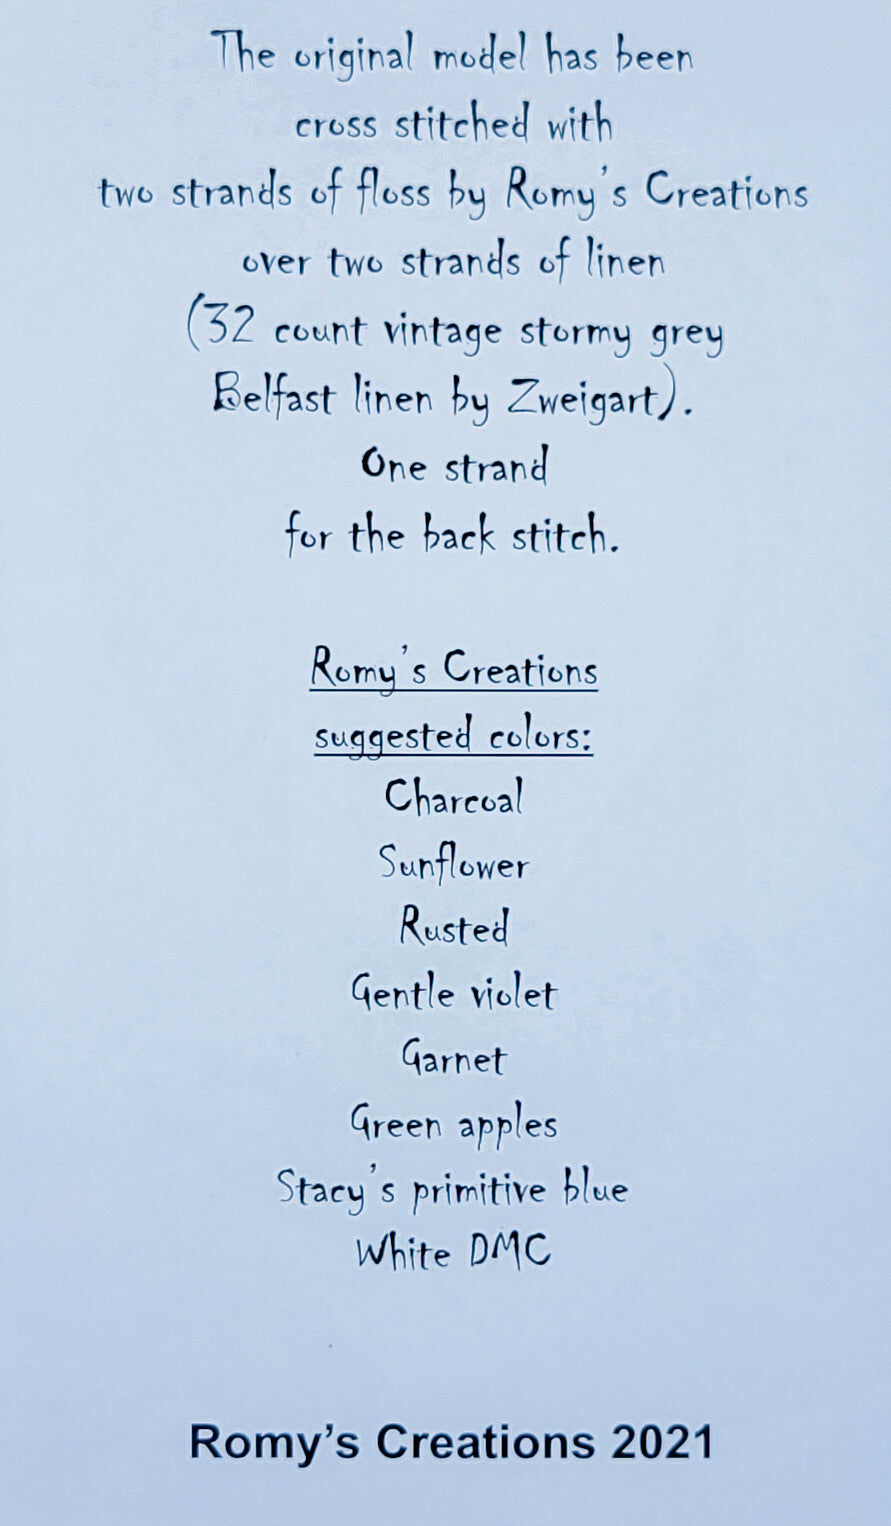 The original model has been
cross stitched with
two strands of floss by Romy's Creations
over two strands of linen
(32 count vintage stormy grey
Belfast linen by Zweigart).
One strand
for the back stitch.
Romy's Creations
suggested colors:
Charcoal
Sunflower
Rusted
Gentle violet
Garnet
Green apples
Stacy's primitive blue
White DMC
Romy's Creations 2021